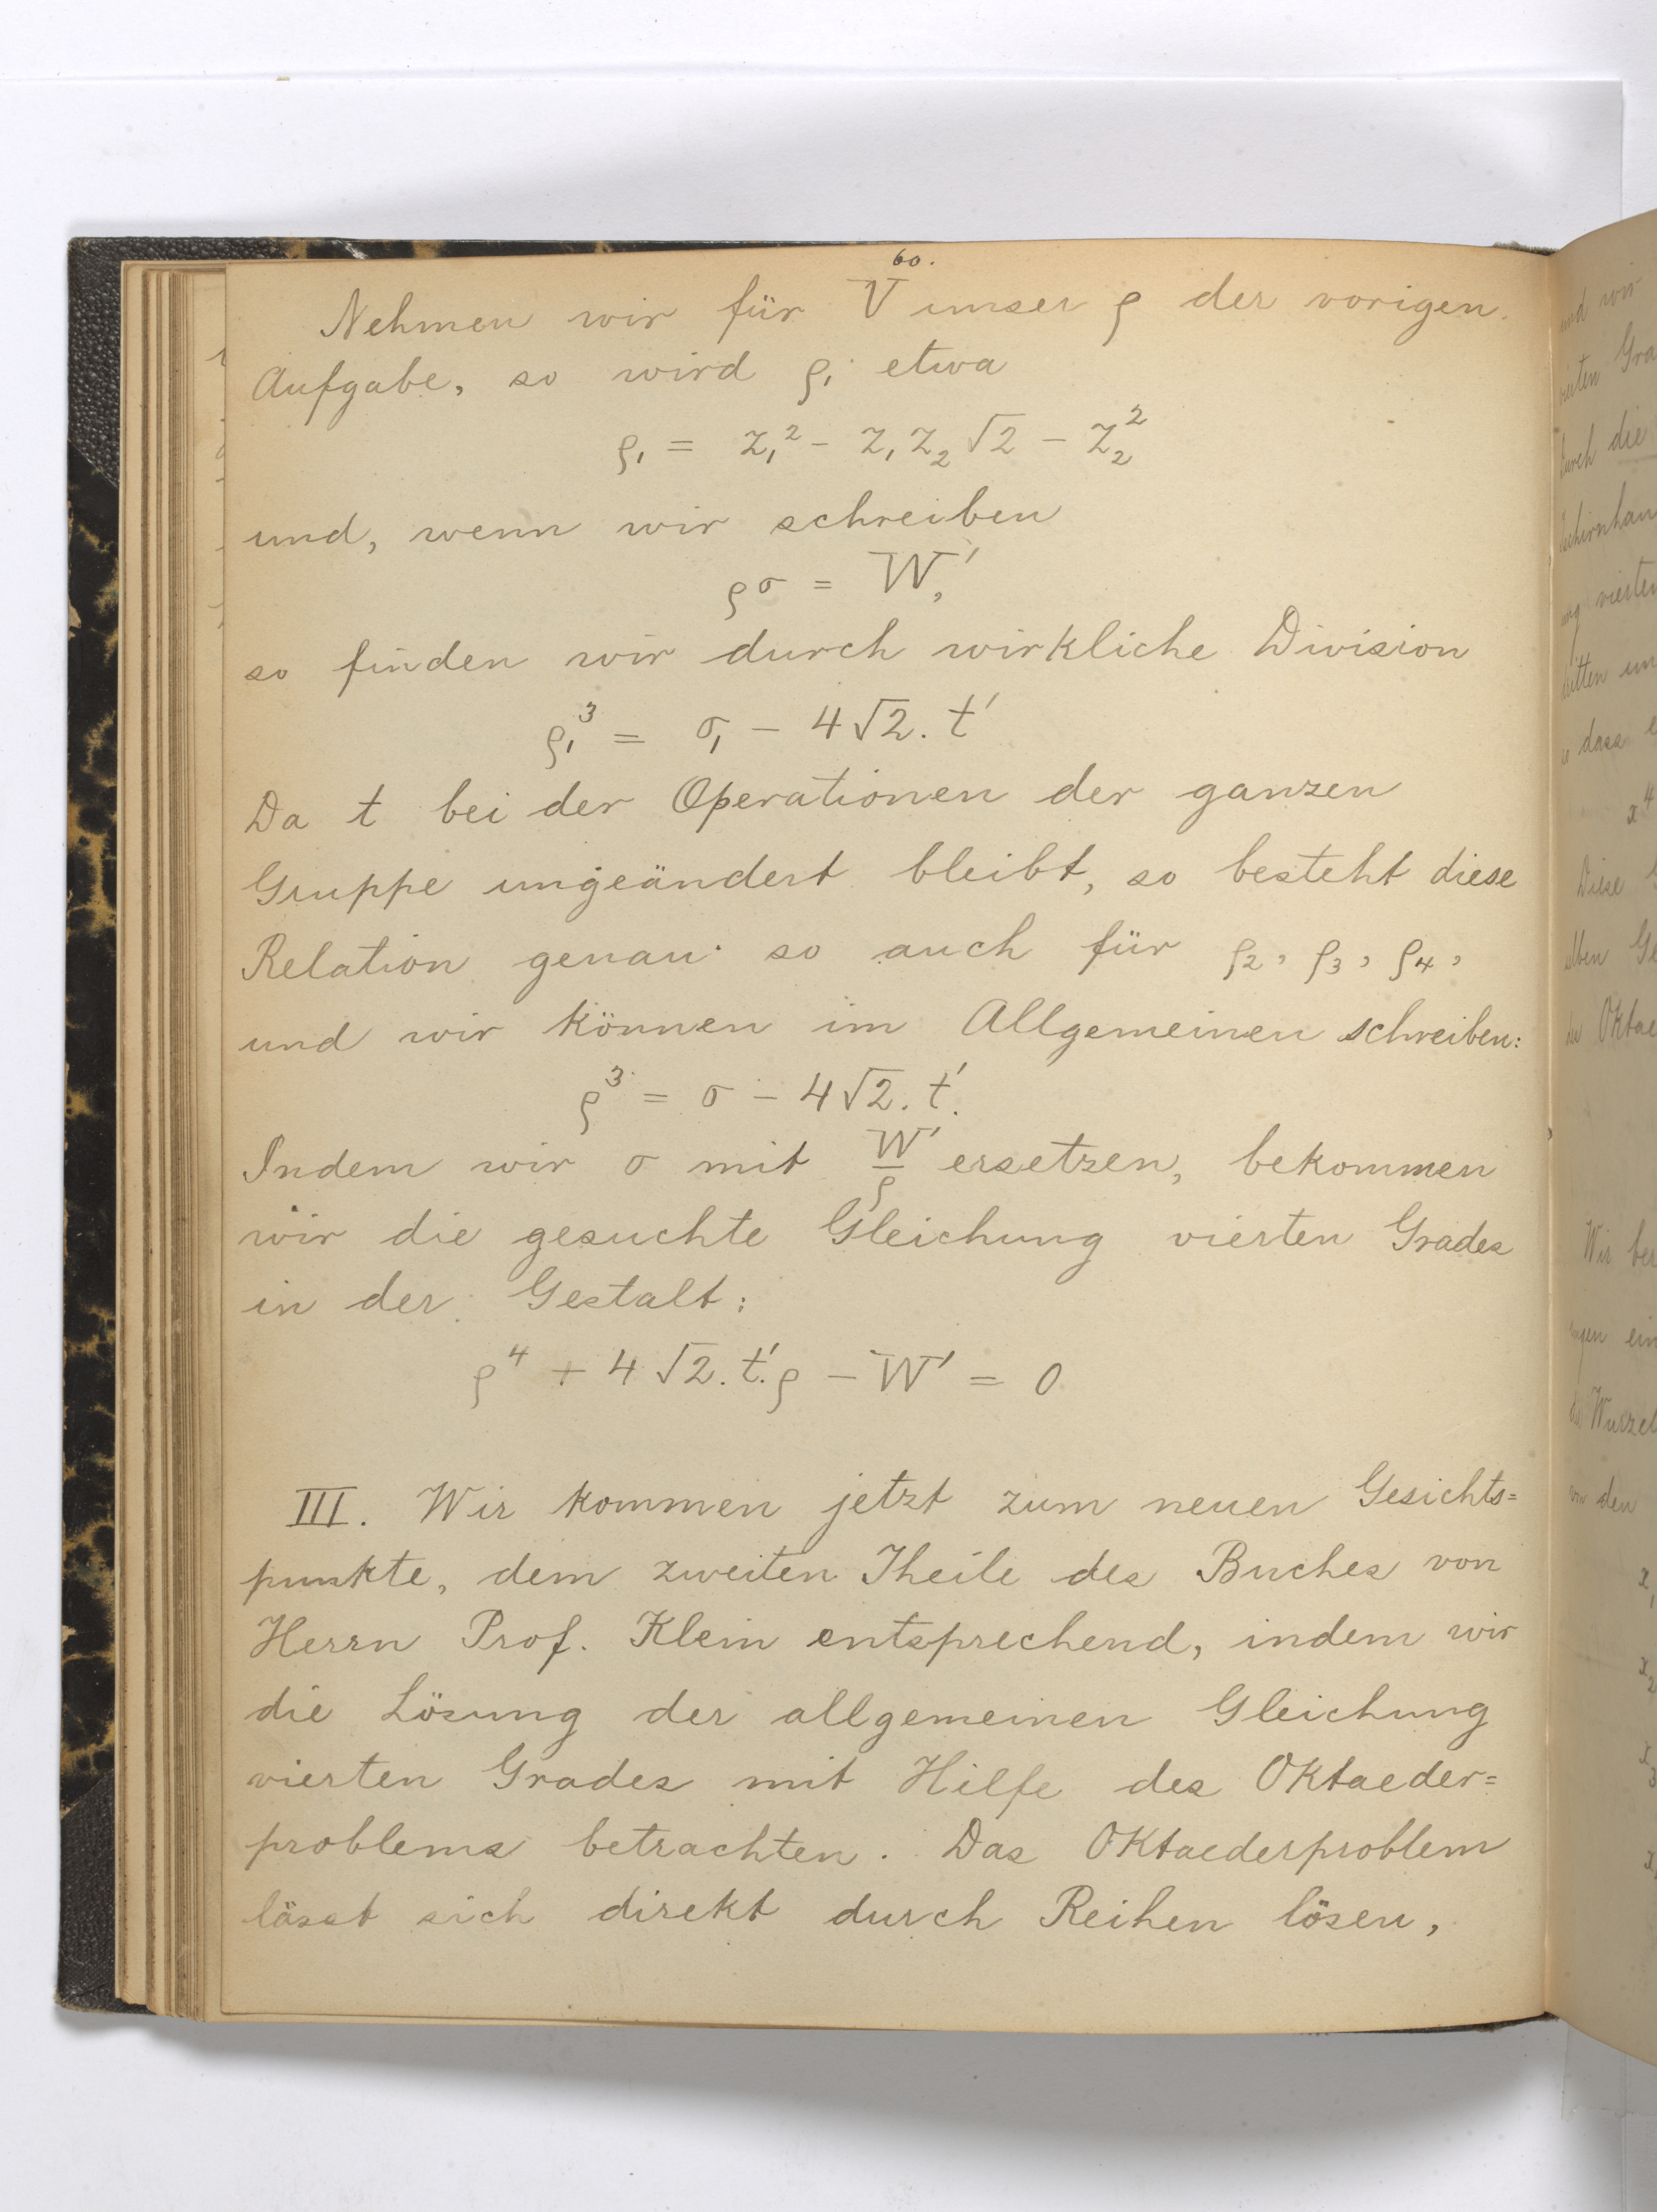 60.
Nehmen wir für V unser ρ der vorigen
Aufgabe, so wird ρ₁ etwa
ρ₁ = z₁² - z₁z₂√2 - z₂²
und, wenn wir schreiben
ρσ = W',
so finden wir durch wirkliche Division
ρ₁³ = σ₁ - 4√2. t'
Da t bei der Operationen der ganzen
Gruppe ungeändert bleibt, so besteht diese
Relation genau so auch für ρ₂, ρ₃, ρ₄,
und wir können im Allgemeinen schreiben:
ρ³ = σ - 4√2. t'.
Indem wir σ mit W'/ρ ersetzen, bekommen
wir die gesuchte Gleichung vierten Grades
in der Gestalt:
ρ⁴ + 4√2. t'. ρ - W' = 0
III. Wir kommen jetzt zum neuen Gesichts=
punkte, dem zweiten Theile des Buches von
Herrn Prof. Klein entsprechend, indem wir
die Lösung der allgemeinen Gleichung
vierten Grades mit Hilfe des Oktaeder=
problems betrachten. Das Oktaederproblem
lässt sich direkt durch Reihen lösen,